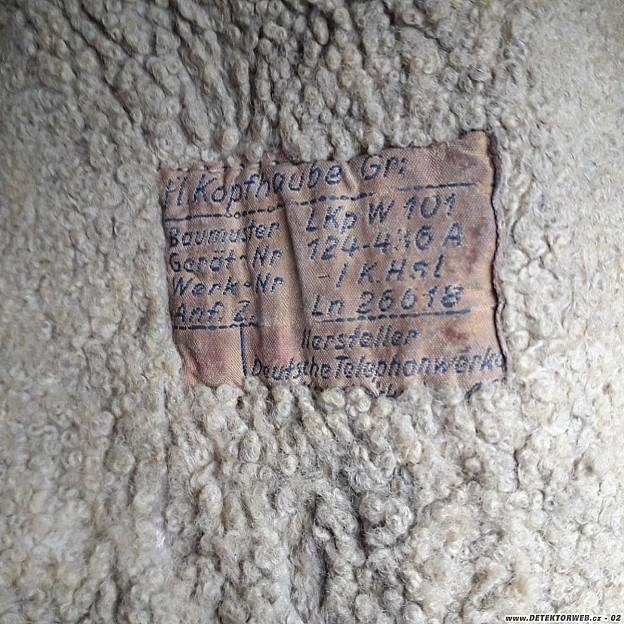 Fl.Kopfhaube Gr:
Baumuster LKp W 101
Gerät-Nr 124-436 A
Werk-Nr
Anf. Z. Ln 26618
Hersteller
Deutsche Telephonwerke
www.DETEKTORWEB.cz - 02